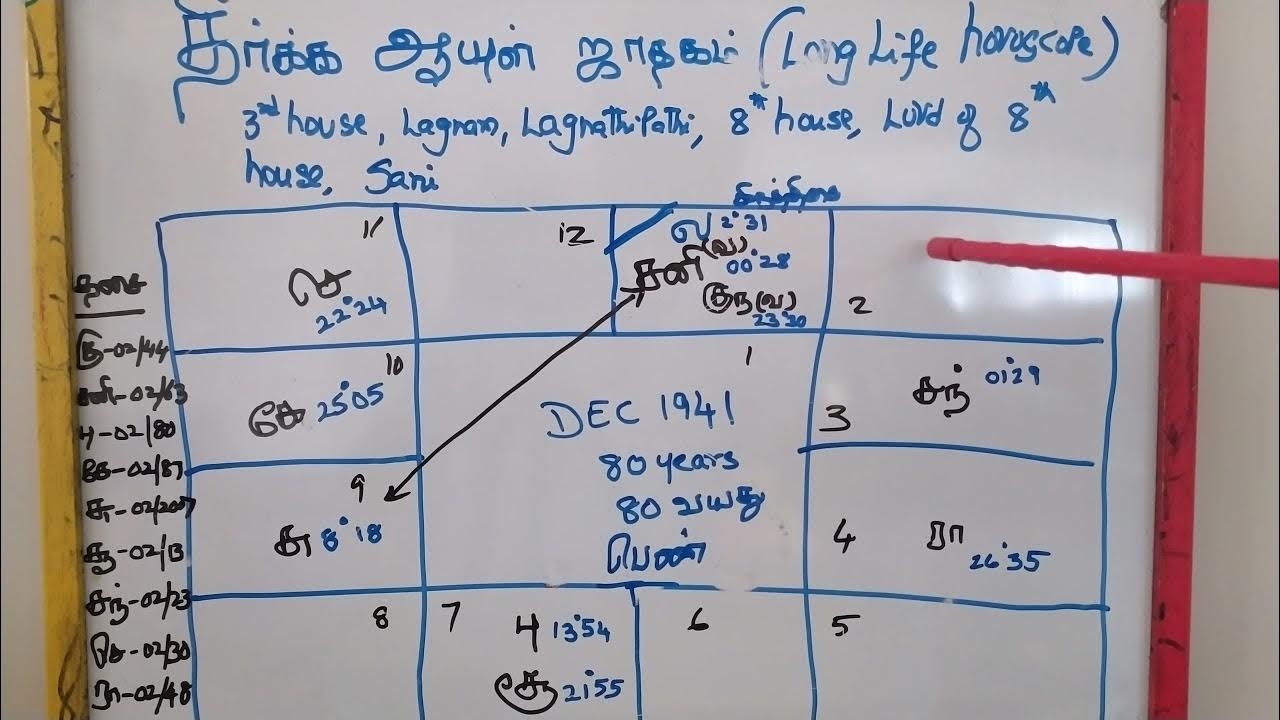 தீர்க்க ஆயுள் ஜாதகம் (Long Life horoscope)
3rd house, Lagnam, Lagnathipathi, 8th house, Lord of 8th
house, Sani
தசை
குரு-02/44
சனி-02/63
பு-02/80
கே-02/87
சு-02/2007
சூ-02/13
சந்-02/23
செ-02/30
ரா-02/48
11
செ
22°24
12
ல 2°31
சனி (வ)
00°28
குரு (வ)
23°30
1
2
10
கே 25°05
3
சந் 01°29
9
சு 8°18
4
ரா
26°35
DEC 1941
80 years
80 வயது
பெண்
8
7
பு 13°54
சூ 21°55
6
5